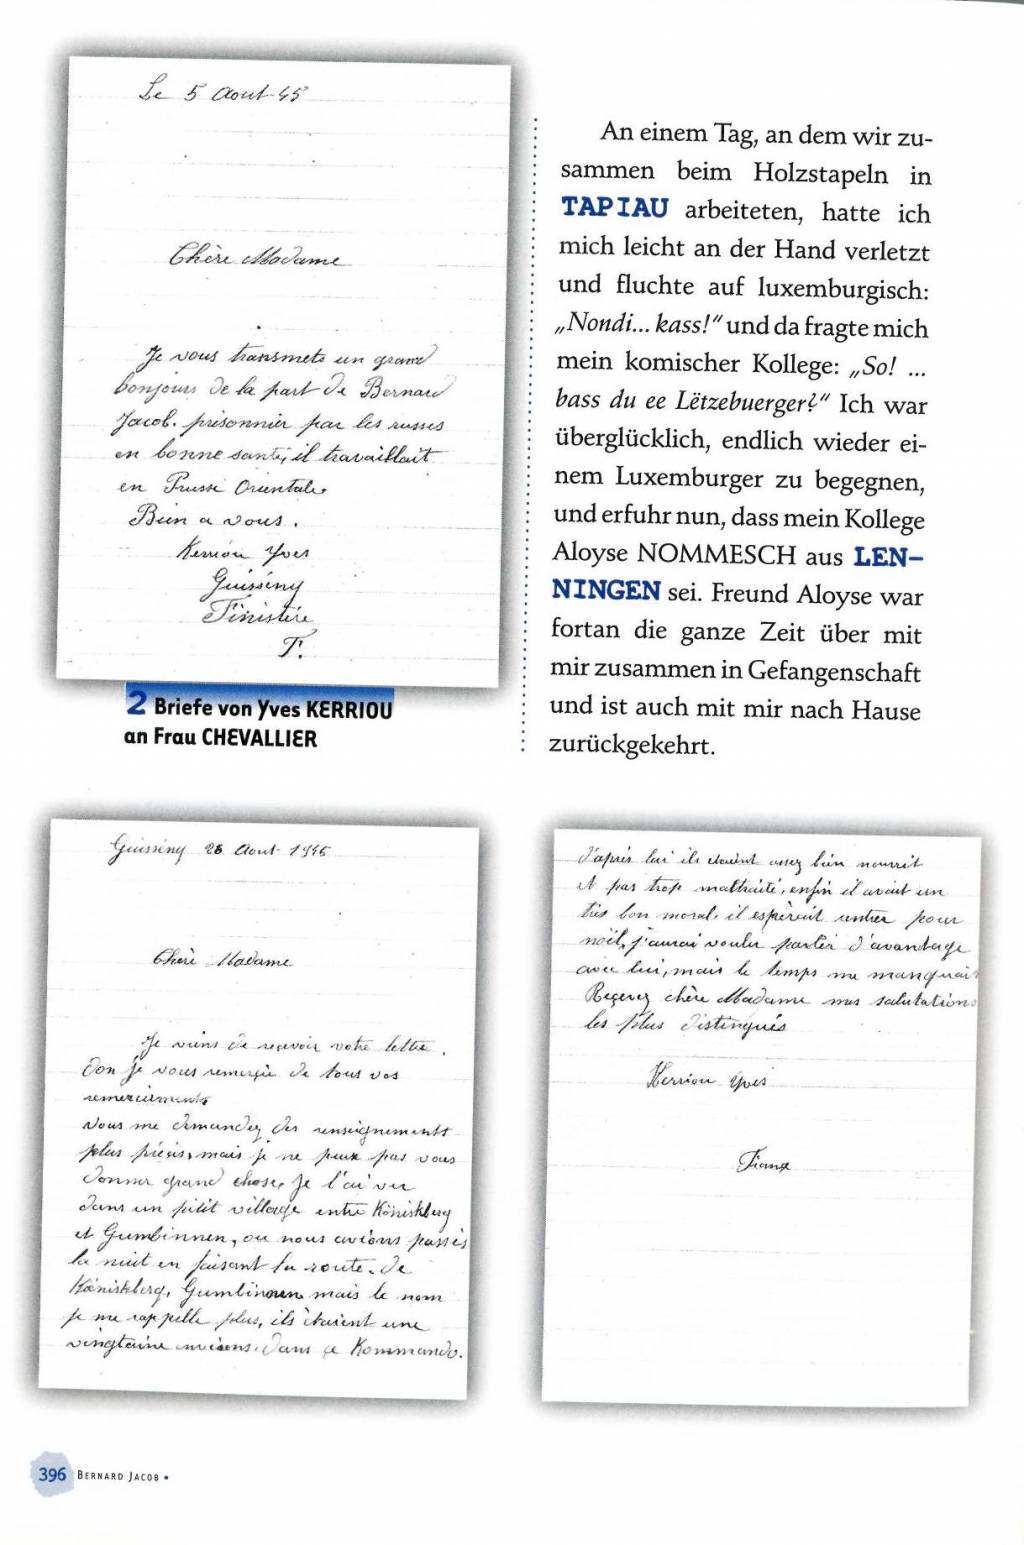 Le 5 Aout 45
Chère Madame
Je vous transmets un grand
bonjours de la part de Bernard
Jacob. prisonnier par les russes
en bonne santé, il travaillait
en Prusse Orientale.
Bien a vous.
Kerriou Yves
Guissény
Finistère
F.
2 Briefe von Yves KERRIOU
an Frau CHEVALLIER
An einem Tag, an dem wir zu-
sammen beim Holzstapeln in
TAPIAU arbeiteten, hatte ich
mich leicht an der Hand verletzt
und fluchte auf luxemburgisch:
„Nondi... kass!“ und da fragte mich
mein komischer Kollege: „So! ...
bass du ee Lëtzebuerger?“ Ich war
überglücklich, endlich wieder ei-
nem Luxemburger zu begegnen,
und erfuhr nun, dass mein Kollege
Aloyse NOMMESCH aus LEN-
NINGEN sei. Freund Aloyse war
fortan die ganze Zeit über mit
mir zusammen in Gefangenschaft
und ist auch mit mir nach Hause
zurückgekehrt.
Guissény Aout 1945
Chère Madame
Je viens de recevoir votre lettre.
don je vous remerçie de tous vos
remerciements
Vous me demandez des renseignements
plus précis, mais je ne peux pas vous
donner grand chose, Je l'ai vu
dans un pitit village entre Köniskberg
et Gumbinnen, ou nous avions passés
la nuit en faisant la route. de
Köniskberg, Gumbinnen mais le nom
je me rappelle plus, ils étaient une
vingtaine environs. dans ce Kommando.
D'après lui ils étaient assez bien nourrit
et pas trop maltraité, enfin il avait un
très bon moral. il espèrait rentrer pour
noël, j'aurai voulu parler d'avantage
avec lui, mais le temps me manquait
Reçevez chère Madame mes salutations
les plus distingués
Kerriou Yves
396 BERNARD JACOB •